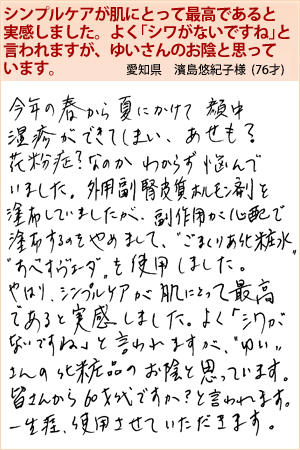 シンプルケアが肌にとって最高であると
実感しました。よく「シワがないですね」と
言われますが、ゆいさんのお陰と思って
います。
愛知県 濱島悠紀子様 (76才)
今年の春から夏にかけて 顔中
湿疹ができてしまい、あせも?
花粉症?なのか わからず 悩んで
いました。外用副腎皮質ホルモン剤を
塗布していましたが、副作用が心配で
塗布するのをやめまして、"ごまくりあ化粧水"
"あべすヴェーダ"を使用しました。
やはり、シンプルケアが肌にとって最高
であると実感しました。よく「シワが
ないですね」と言われますが、"ゆい"
さんの化粧品のお陰と思っています。
皆さんから60才代ですか?と言われます。
一生涯、使用させていただきます。